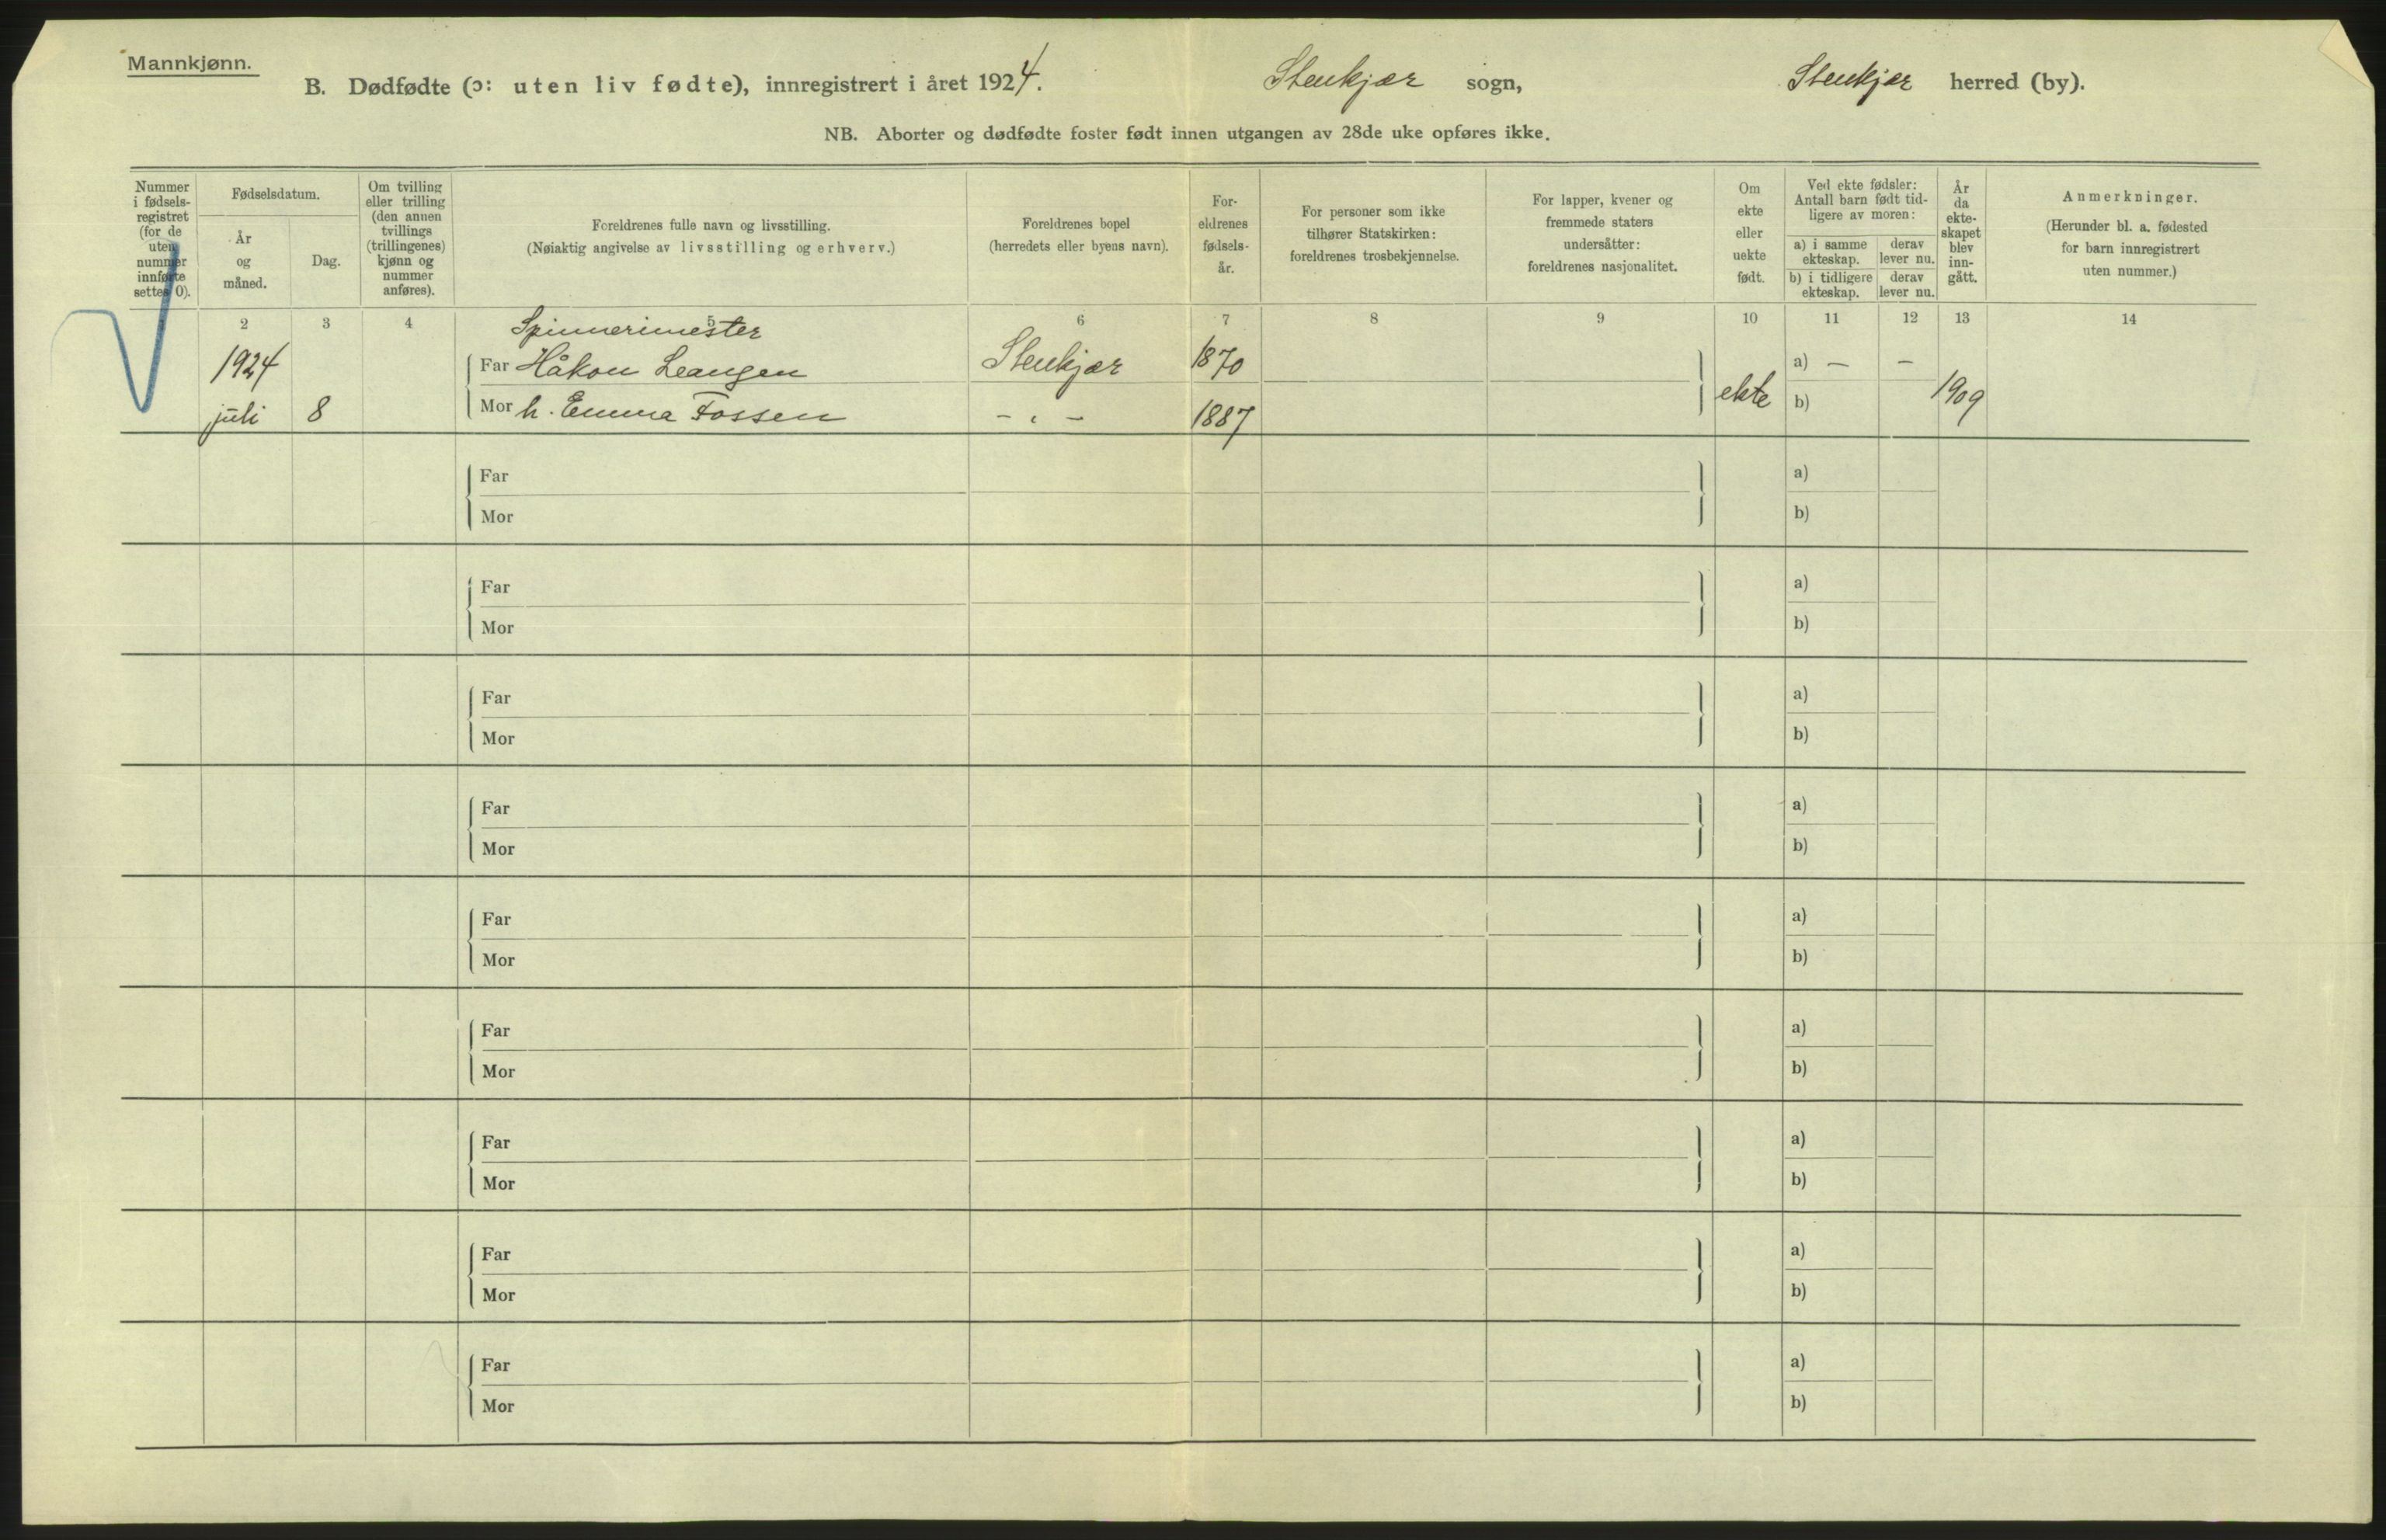 Mannkjønn.
B. Dødfødte (ɔ: uten liv fødte), innregistrert i året 1924. Stenkjær sogn, Stenkjær herred (by).
NB. Aborter og dødfødte foster født innen utgangen av 28de uke opføres ikke.
Nummer i fødsels-registret (for de uten nummer innførte settes 0).
Fødselsdatum.
År og måned.
Dag.
Om tvilling eller trilling (den annen tvillings (trillingenes) kjønn og nummer anføres).
Foreldrenes fulle navn og livsstilling.
(Nøiaktig angivelse av livsstilling og erhverv.)
Foreldrenes bopel
(herredets eller byens navn).
For-eldrenes fødsels-år.
For personer som ikke tilhører Statskirken: foreldrenes trosbekjennelse.
For lapper, kvener og fremmede staters undersåtter: foreldrenes nasjonalitet.
Om ekte eller uekte født.
Ved ekte fødsler: Antall barn født tid-ligere av moren:
a) i samme ekteskap. derav lever nu.
b) i tidligere ekteskap. derav lever nu.
År da ekte-skapet blev inn-gått.
Anmerkninger.
(Herunder bl. a. fødested for barn innregistrert uten nummer.)
1 2 3 4 5 6 7 8 9 10 11 12 13 14
Spinnerimester
1924 Far Håkon Leangen Stenkjær 1870 a) — —
juli 8 Mor h. Emma Fossen - „ - 1887 ekte b) 1909
Far a)
Mor b)
Far a)
Mor b)
Far a)
Mor b)
Far a)
Mor b)
Far a)
Mor b)
Far a)
Mor b)
Far a)
Mor b)
Far a)
Mor b)
Far a)
Mor b)